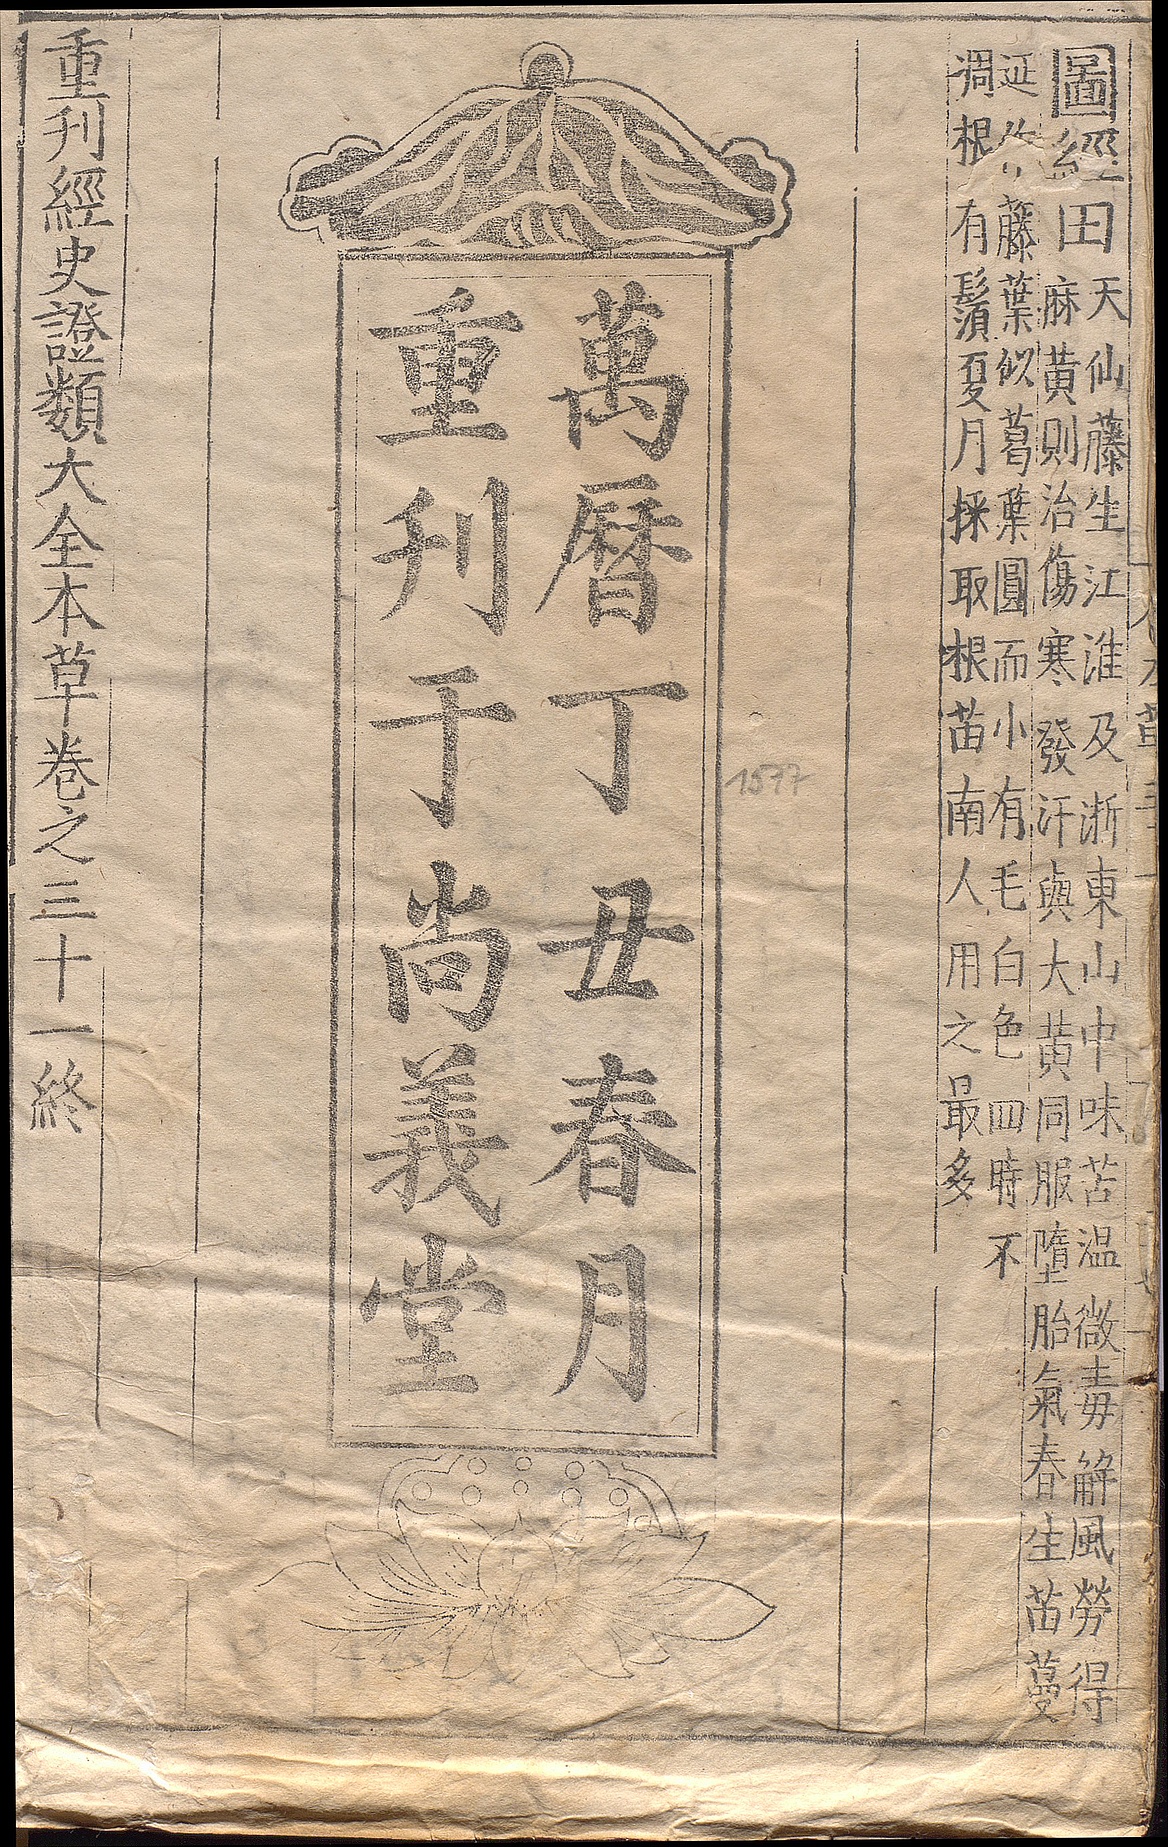 圖經田
天仙藤生江淮及浙東山中味苦温微毒解風勞得
麻黄則治傷寒發汗與大黄同服墮胎氣春生苗蔓
延作藤葉似葛葉圓而小有毛白色四時不
凋根有鬚夏月採取根苗南人用之最多
1577
萬曆丁丑春月
重刊于尚義堂
重刊經史證類大全本草卷之三十一終